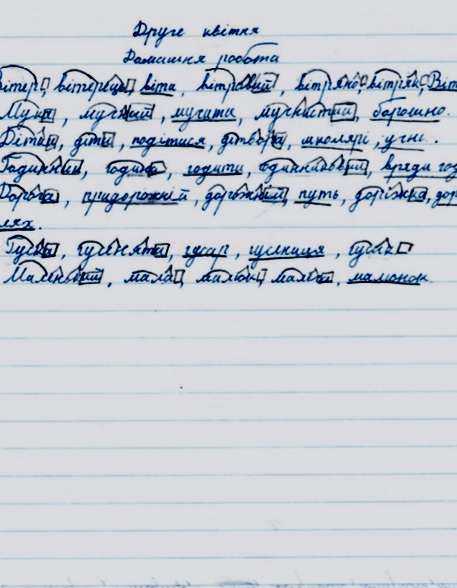 Друге квітня
Домашня робота
Вітер, вітерець, віта, вітровий, вітряно, вітряк, Віт
Мука, мучний, мучити, мучнистий, борошно.
Діти, подітися, дітвора, школярі, учні.
Годинний, година, годити, годинниковий, вряди год
Дорога, придорожній, дорожній, путь, доріжка, дор
лях.
Гуска, гусенята, гусар, гусениця, гусак
Маленький, мала, малюк, малеча, мамонок.